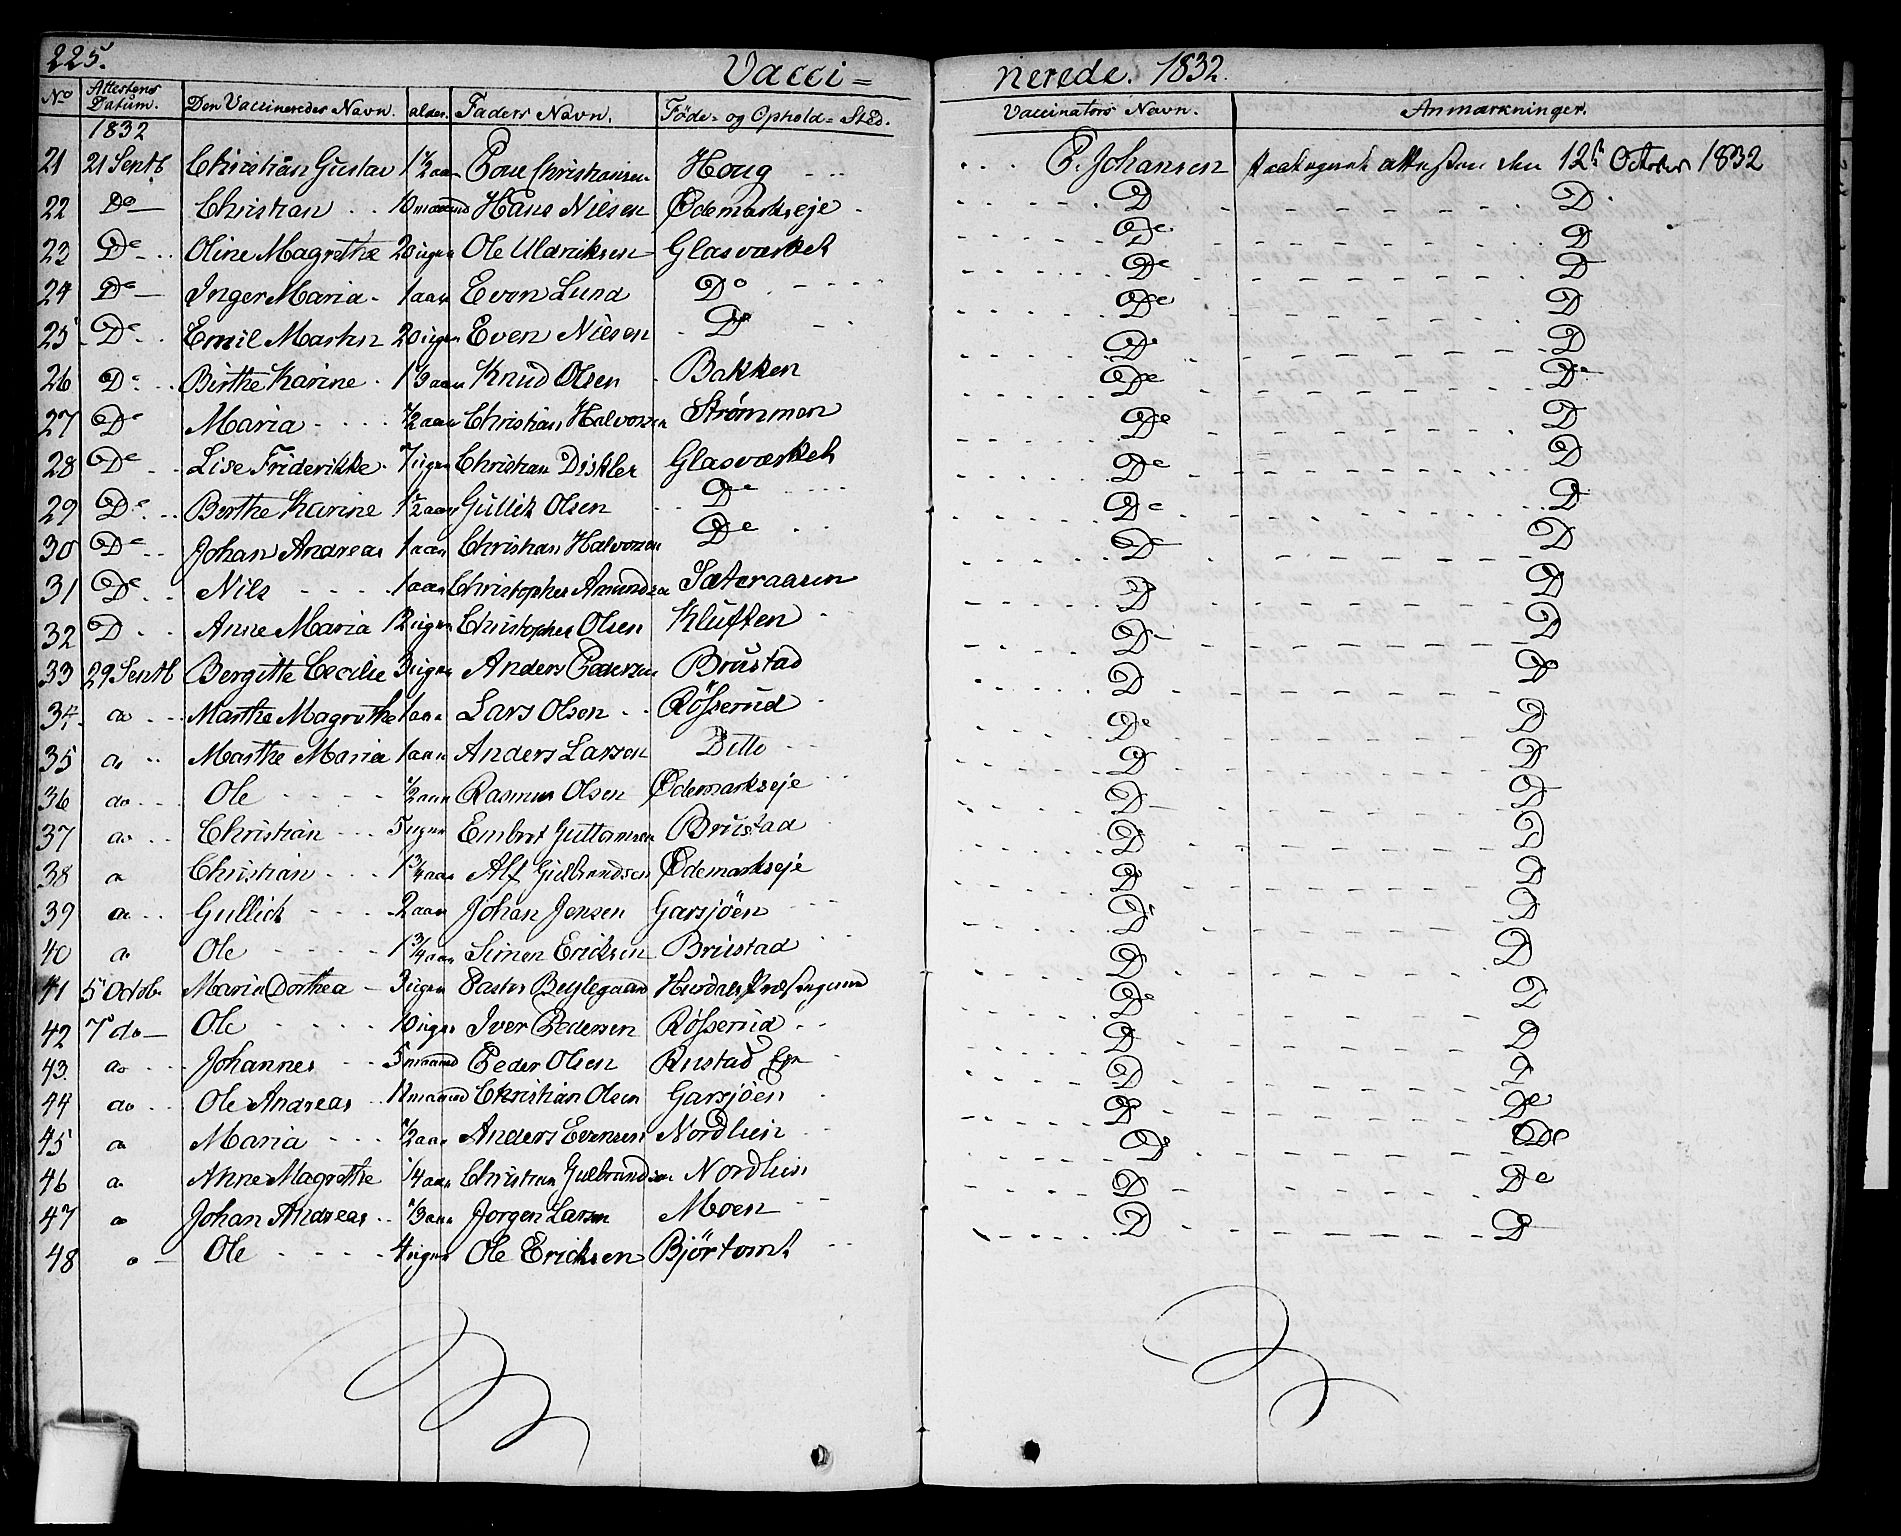 225.
Vacci = nerede. 1832.
No Attestens Datum. Den Vaccineredes Navn. alder. Faders Navn. Føde- og Ophold-Sted. Vaccinators Navn. Anmærkninger.
1832
21 21 Septb Christian Gustav 1 1/2 aar Poul Christiansen Houg - - - - P. Johansen attesten den 12te October 1832
22 Do — Christian - - 10 maaned Hans Nilsen Ødemarkseje - D D
23 Do - - Oline Magrethe 20 uger Ole Uldriksen Glasværket Do D
24 Do — Inger Maria - 1 aar Even Lund Do - - - Do D
25 Do - - Emil Martin 20 uger Even Nilsen - Do - - Do D
26 Do - - Birthe Karine - 1 1/3 aar Knud Olsen - Bakken Do D
27 Do Maria - - - - 1/2 aar Christian Halvorsen Strømmen Do Do
28 Do - - Lise Friderikke - 7 uger Christian Diskler Glasværket Do D
29 Do - - Berthe Karine 1 1/2 aar Gullik Olsen - - Do - - - Do D
30 Do - - Johan Andreas 1 aar Christian Halvorsen Do - - Do D
31 Do - - Nils - - - - 1 aar Christopher Amundsen Sæteraasen Do D
32 D - - Anne Maria 12 uger Christopher Olsen Kluften - - D D
33 29 Septb Bergitte Cecilie 3 uger Anders Pedersen Brustad D D
34 do - - Marthe Magrethe 1 aar Lars Olsen - - Røsserud - D D
35 do - - Marthe Maria 1 aar Anders Larsen Ditto - - Do D
36 do - - Ole - - - - 1/2 aar Rasmus Olsen Ødemarkseje - - D D
37 do - - Christian - - - 5 uger Embret Guttormsen Brustad - D D
38 do Christian - - - 1 3/4 aar Alf Gulbrandsen Ødemarkseje D D
39 do - - Gullich - - - 2 aar Johan Jensen Garsjöen - - - D D
40 do Ole - - - - 1 3/4 aar Simen Ericksen Brustad - - D D
41 5 Octob. Maria Dorthea — 3 uger Pastor Hurdals D D
42 7de do — Ole - - - - 10 uger Iver Pedersen Røsserud - - Do D
43 do - - - Johannes - - 5 maaned Peder Olsen Rustad - D D
44 do - - Ole Andreas - - 11 maaned Christian Olsen Garsjöen - D D
45 do Maria - - - 1/2 aar Anders Evensen Nordlien - - D Do
46 do Anne Magrethe 1/4 aar Christian Gulbrandsen Nordlien D Do
47 do Johan Andreas - - 1/3 aar Jørgen Larsen Moen - - D Do
48 do — Ole - - - - 4 uger Ole Ericksen Bjørtomt - - D D